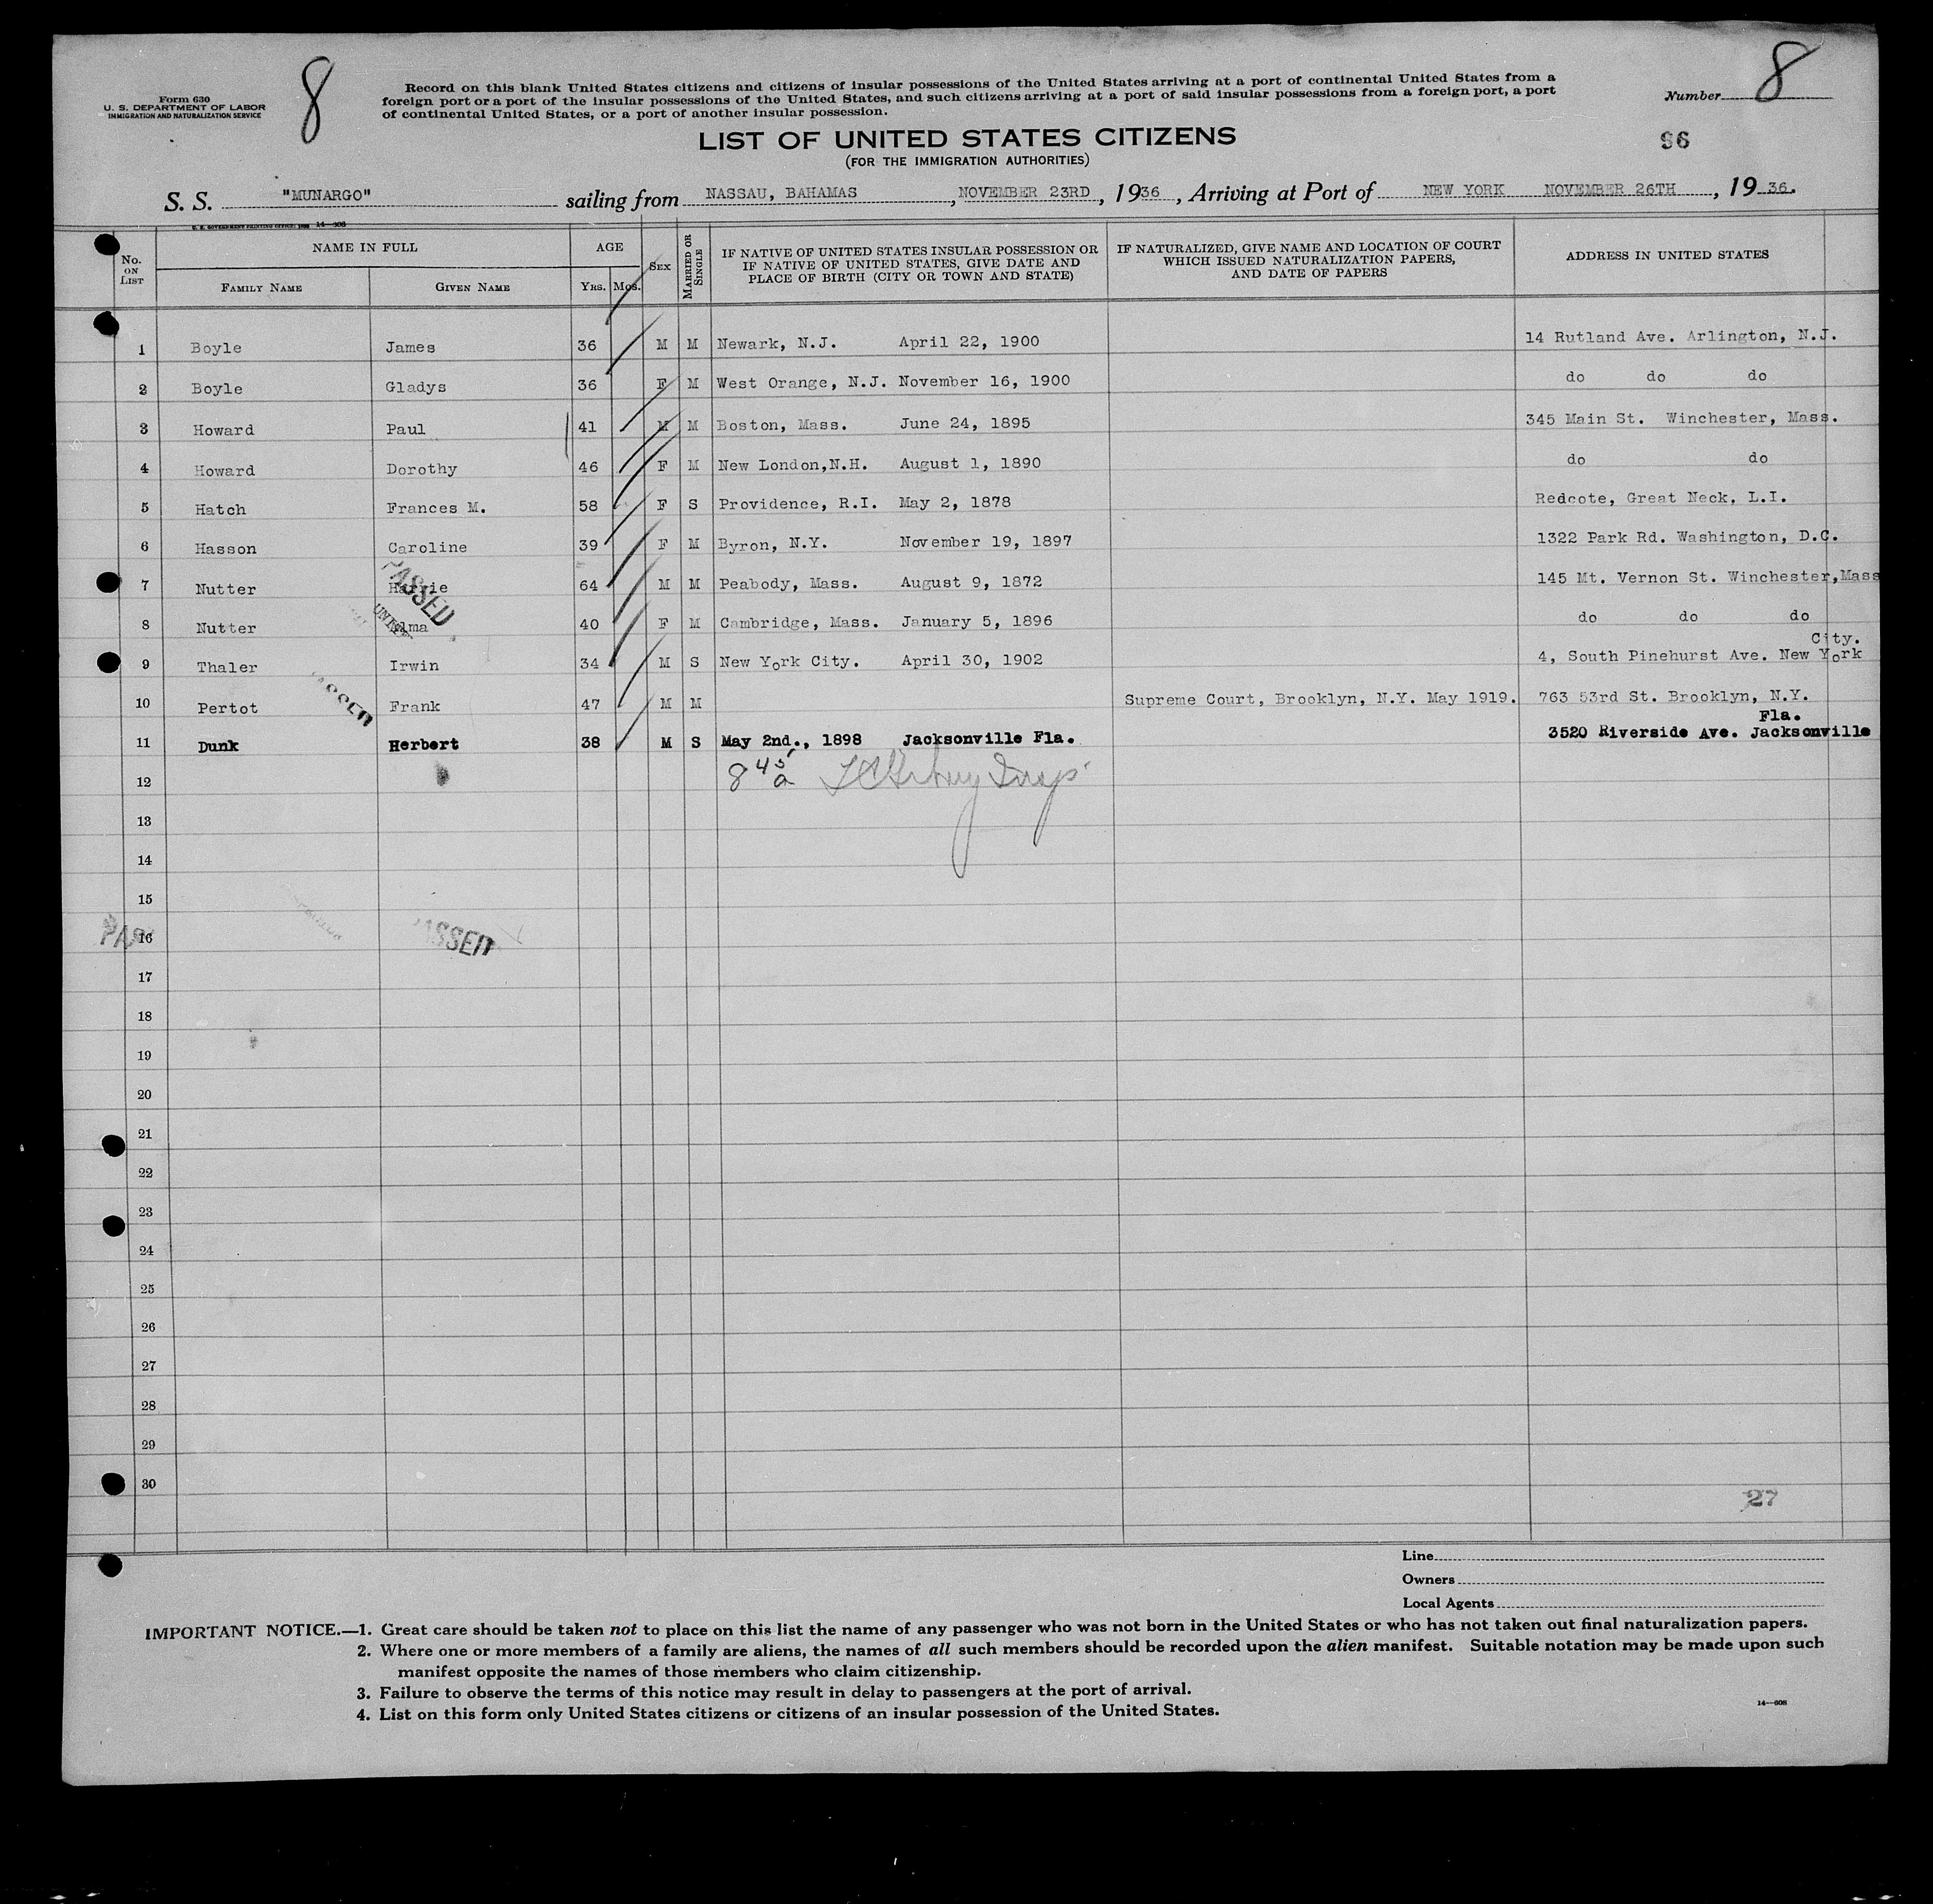 8
Form 630
U. S. DEPARTMENT OF LABOR
IMMIGRATION AND NATURALIZATION SERVICE
Record on this blank United States citizens and citizens of insular possessions of the United States arriving at a port of continental United States from a
foreign port or a port of the insular possessions of the United States, and such citizens arriving at a port of said insular possessions from a foreign port, a port
of continental United States, or a port of another insular possession.
Number 8
LIST OF UNITED STATES CITIZENS
(FOR THE IMMIGRATION AUTHORITIES)
96
S. S. "MUNARGO" sailing from NASSAU, BAHAMAS, NOVEMBER 23RD, 1936, Arriving at Port of NEW YORK NOVEMBER 26TH, 1936.
U. S. GOVERNMENT PRINTING OFFICE 14—608
No. ON LIST
NAME IN FULL
FAMILY NAME
GIVEN NAME
AGE
YRS. MOS.
SEX
MARRIED OR SINGLE
IF NATIVE OF UNITED STATES INSULAR POSSESSION OR
IF NATIVE OF UNITED STATES, GIVE DATE AND
PLACE OF BIRTH (CITY OR TOWN AND STATE)
IF NATURALIZED, GIVE NAME AND LOCATION OF COURT
WHICH ISSUED NATURALIZATION PAPERS,
AND DATE OF PAPERS
ADDRESS IN UNITED STATES
1 Boyle James 36 M M Newark, N.J. April 22, 1900 14 Rutland Ave. Arlington, N.J.
2 Boyle Gladys 36 F M West Orange, N.J. November 16, 1900 do do do
3 Howard Paul 41 M M Boston, Mass. June 24, 1895 345 Main St. Winchester, Mass.
4 Howard Dorothy 46 F M New London,N.H. August 1, 1890 do do
5 Hatch Frances M. 58 F S Providence, R.I. May 2, 1878 Redcote, Great Neck, L.I.
6 Hasson Caroline 39 F M Byron, N.Y. November 19, 1897 1322 Park Rd. Washington, D.C.
7 Nutter 64 M M Peabody, Mass. August 9, 1872 145 Mt. Vernon St. Winchester,Mass
PASSED
8 Nutter 40 F M Cambridge, Mass. January 5, 1896 do do do
City.
9 Thaler Irwin 34 M S New York City. April 30, 1902 4, South Pinehurst Ave. New York
10 Pertot Frank 47 M M Supreme Court, Brooklyn, N.Y. May 1919. 763 53rd St. Brooklyn, N.Y.
Fla.
11 Dunk Herbert 38 M S May 2nd., 1898 Jacksonville Fla. 3520 Riverside Ave. Jacksonville
12 8 45 a
13
14
15
16
17
18
19
20
21
22
23
24
25
26
27
28
29
30
27
Line
Owners
Local Agents
IMPORTANT NOTICE.—1. Great care should be taken not to place on this list the name of any passenger who was not born in the United States or who has not taken out final naturalization papers.
2. Where one or more members of a family are aliens, the names of all such members should be recorded upon the alien manifest. Suitable notation may be made upon such
manifest opposite the names of those members who claim citizenship.
3. Failure to observe the terms of this notice may result in delay to passengers at the port of arrival.
4. List on this form only United States citizens or citizens of an insular possession of the United States.
14—608